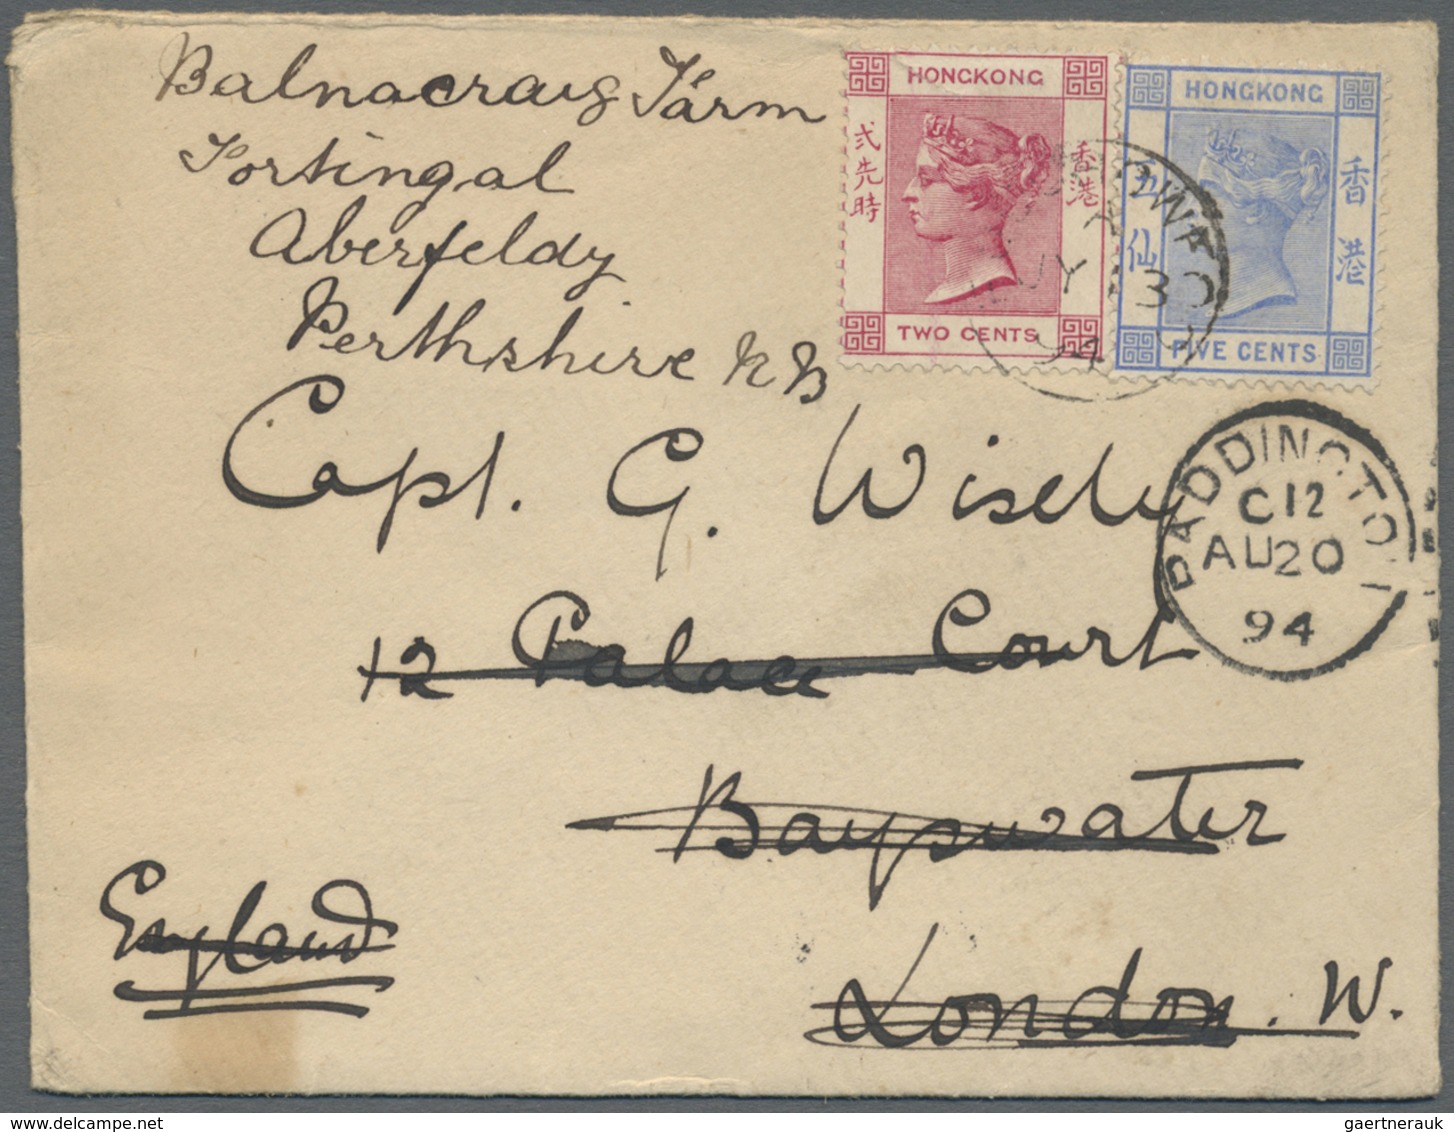 Balnacraig Farm
Fortingal
Aberfeldy
Perthshire N B
HONGKONG
弍先時
香港
TWO CENTS
HONGKONG
五仙
香港
FIVE CENTS
A
JY 30
94
Capt. G. Wisely
PADDINGTON
C12
AU20
94
12 Palace Court
Bayswater
England
London. W.
gaertnerauk